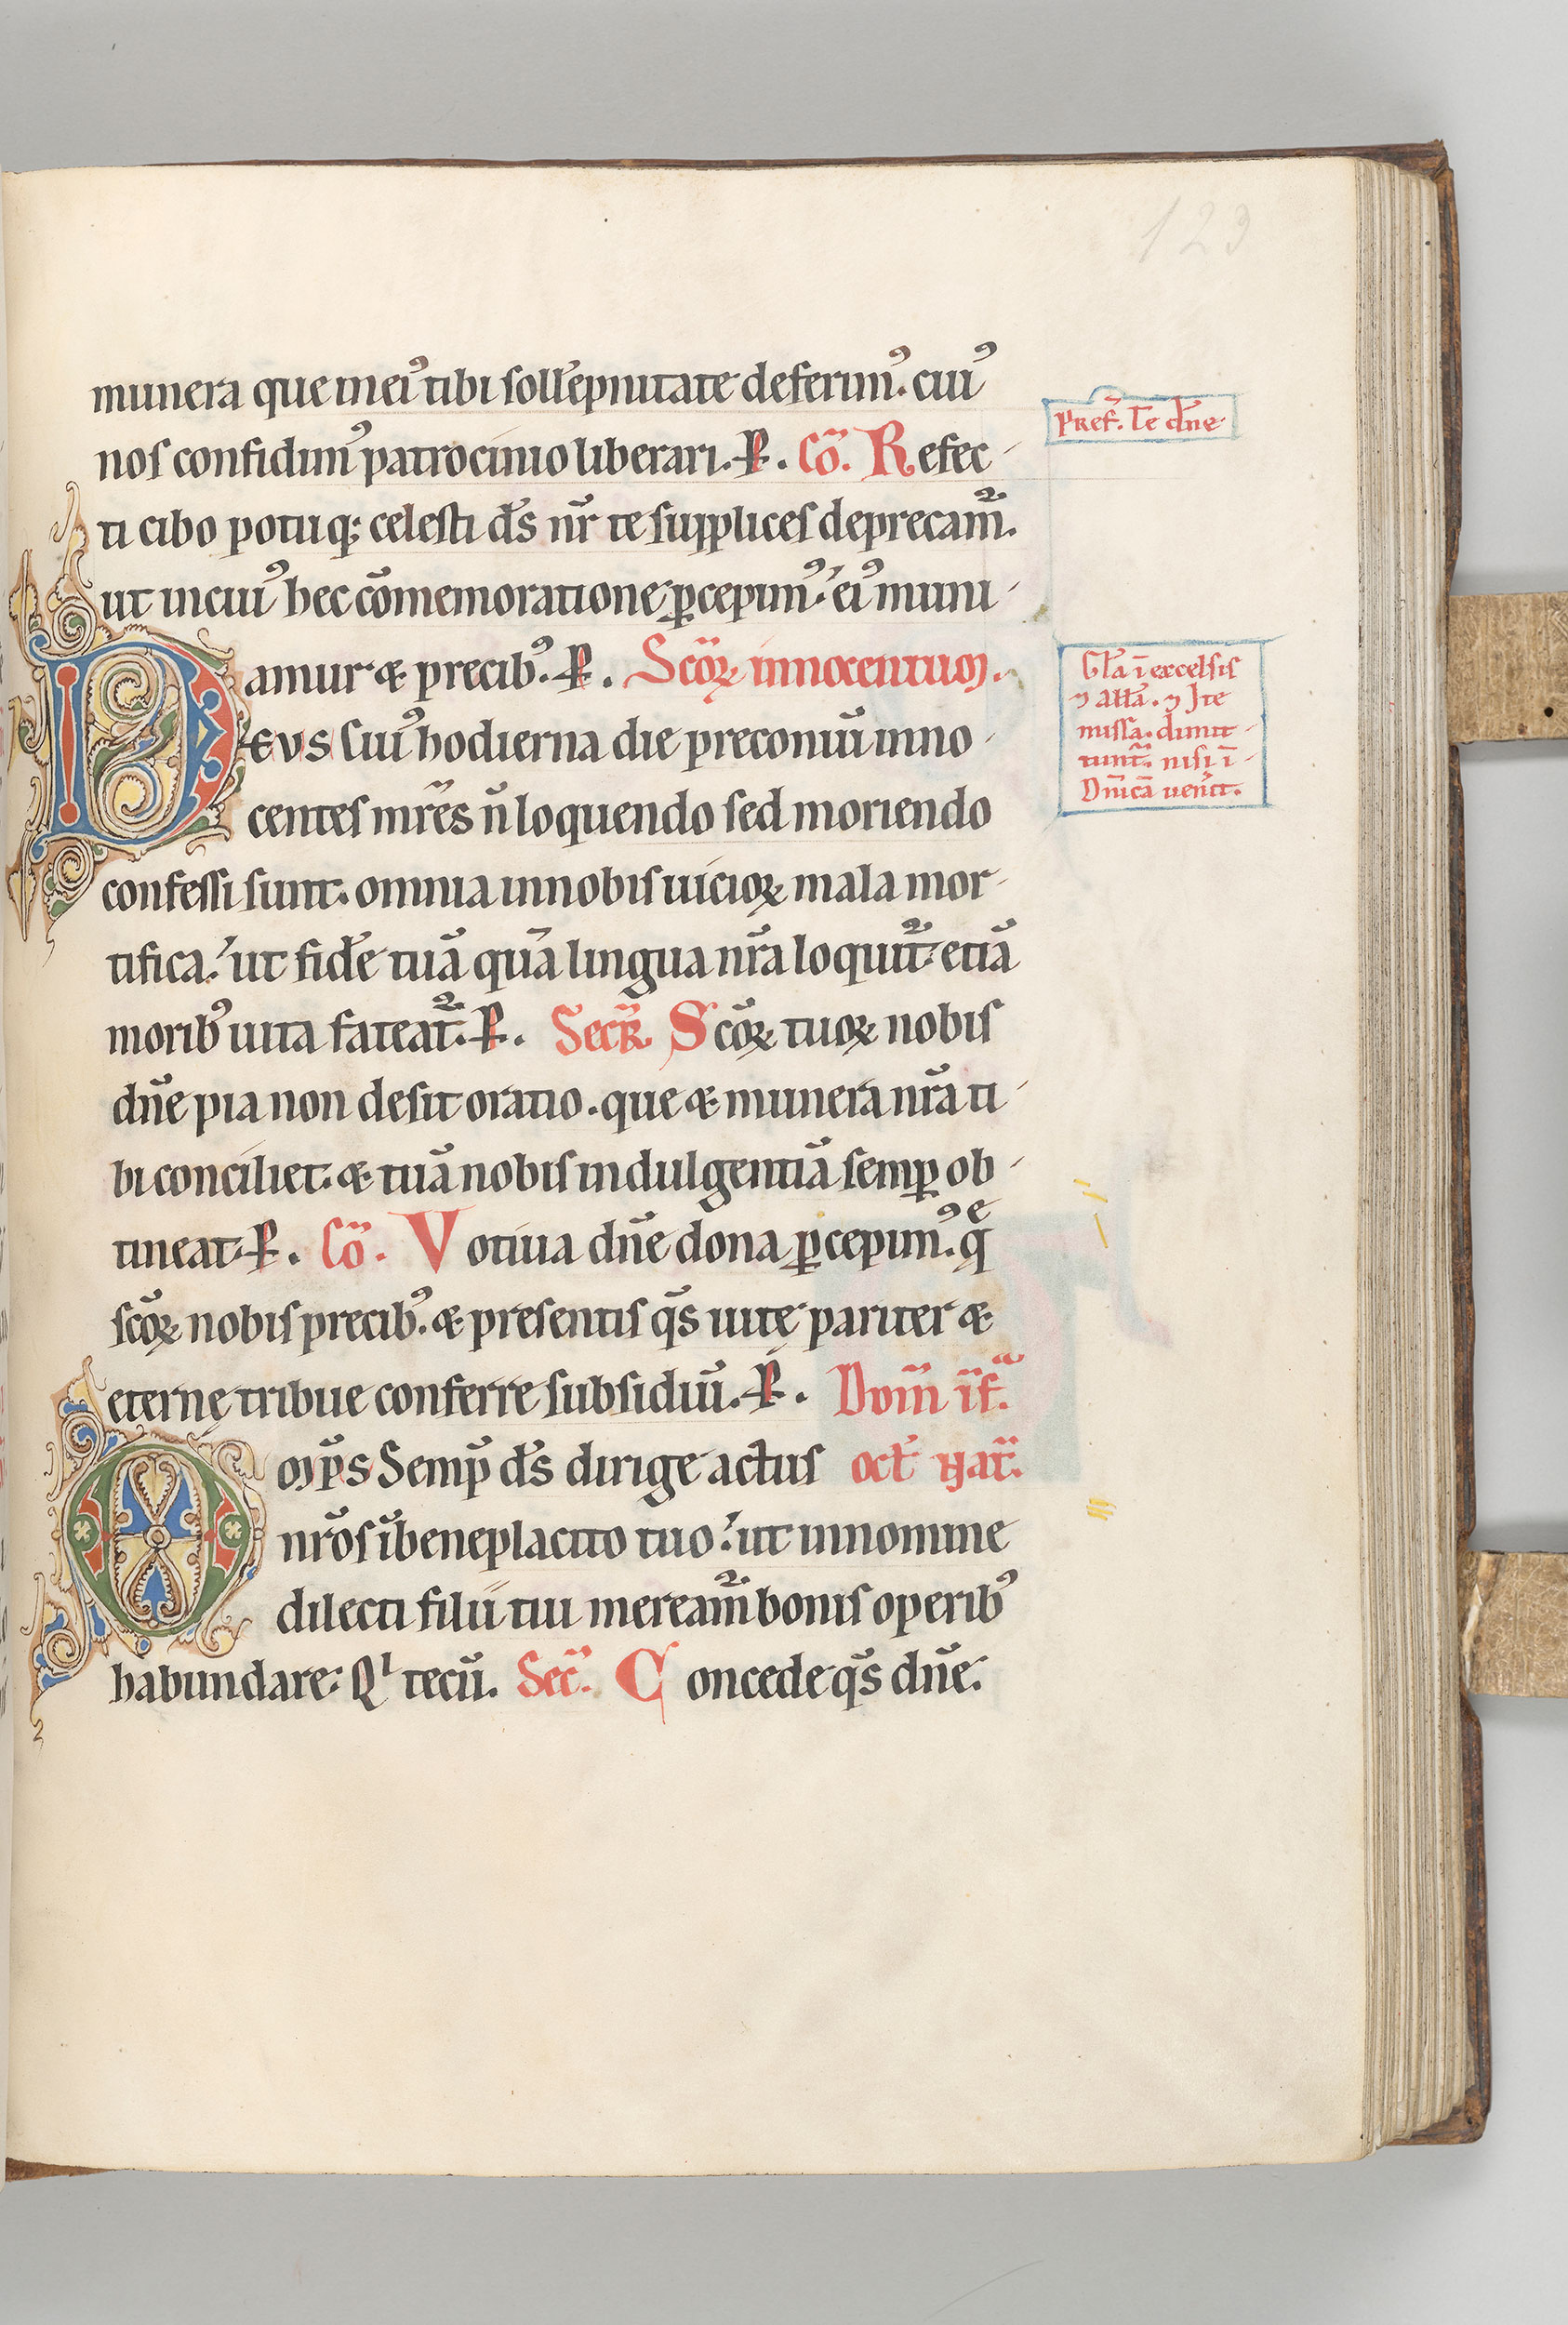 123
munera que in ei᷒ tibi soll̄epnitate deferim᷒. cui᷒
nos confidim᷒ patrocinio liberari. P̶. Cō. Refec-
ti cibo potuq; celesti d̄s nr̄ te supplices deprecam̄.
ut in cui᷒ hec cōmemoratione ꝑcepim᷒. ei᷒ muni-
amur & precib᷒. P̶. Scōꝝ innocentum.
DEVS cui᷒ hodierna die preconiū inno-
centes mr̄es n̄ loquendo sed moriendo
confessi sunt. omnia in nobis uicioꝝ mala mor-
tifica. ut fidē tuā quā lingua nr̄a loquit̄ etiā
morib᷒ uita fateat̄. P̶. Secr̄. Scōꝝ tuoꝝ nobis
dn̄e pia non desit oratio. que & munera nr̄a ti-
bi conciliet. & tuā nobis indulgentiā semꝑ ob-
tineat. P̶. Cō. Votiua dn̄e dona ꝑcepim᷒. qͤ
scōꝝ nobis precib᷒. & presentis q̄s uitę pariter &
eternę tribue conferre subsidiū. P̶. Dom̄ īf.ᵃ
Omp̄s Semp̄ d̄s dirige actus oct̄ Nat̄.
nr̄os ī beneplacito tuo. ut in nomine
dilecti filii tui meream̄ bonis operib᷒
habundare. Qⁱ tecū. Sec̄. Concede q̄s dn̄e.
Pref. Te dn̄e
Gl̄a ī excelsis
⁊ all̄a. ⁊ Ite
missa. dimit-
tunt̄. nisi ī-
Dn̄icā uen̄it.